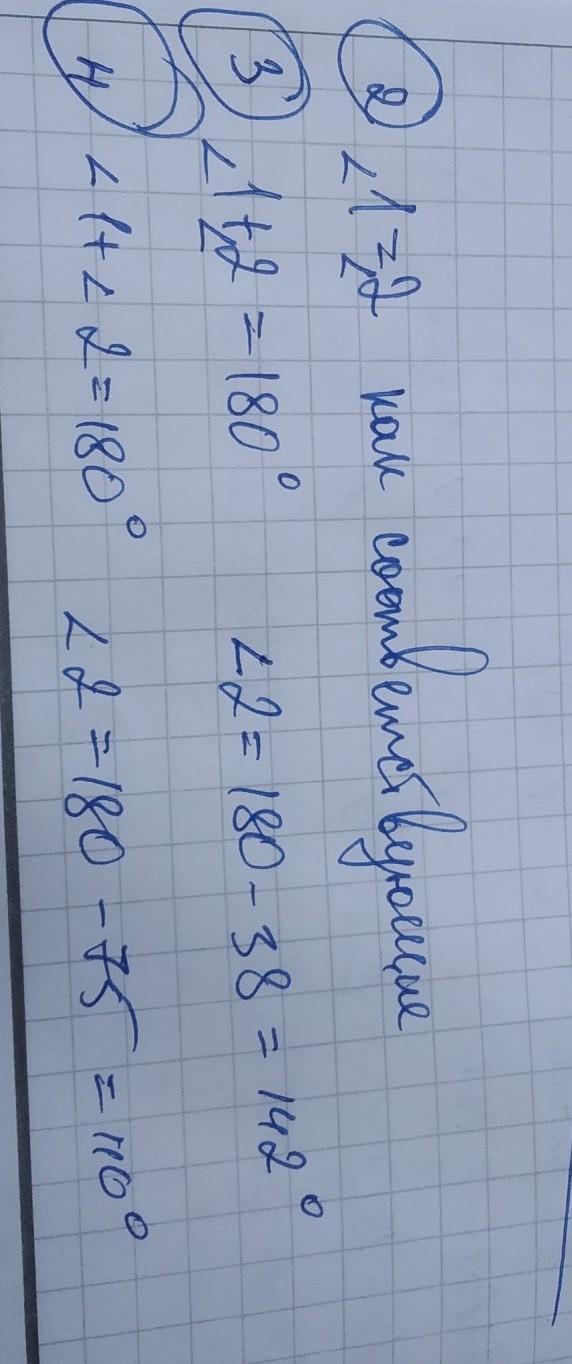 2 ∠1=∠2 как соответствующие
3 ∠1+∠2 = 180° ∠2 = 180 - 38 = 142°
4 ∠1+∠2=180° ∠2 = 180 - 75 = 110°